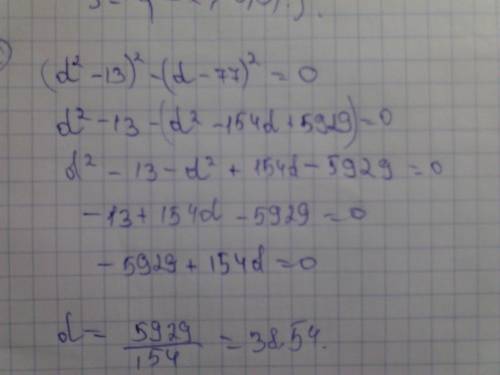 (d² - 13)² - (d - 77)² = 0
d² - 13 - (d² - 154d + 5929) = 0
d² - 13 - d² + 154d - 5929 = 0
- 13 + 154d - 5929 = 0
- 5929 + 154d = 0
d = 5929/154 = 38,54.